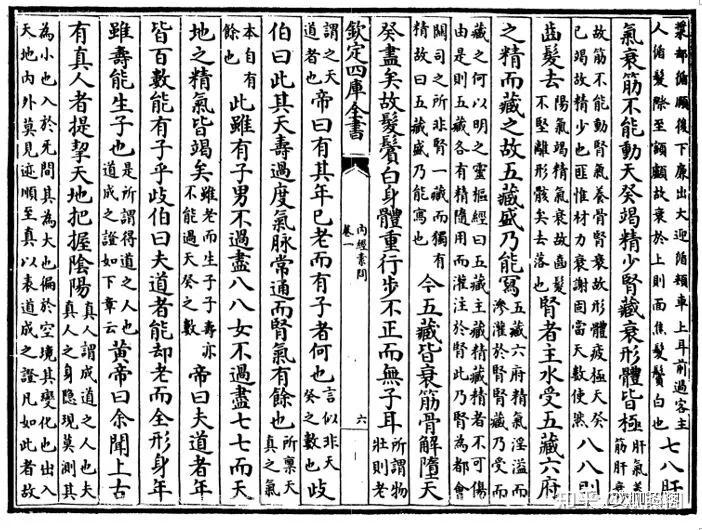 漿却循頤後下廉出大迎循頰車上耳前過客主人循髮際至額顱故衰於上則面焦髮鬢白也七八肝
氣衰筋不能動天癸竭精少腎藏衰形體皆極肝氣養筋肝衰
故筋不能動腎氣養骨腎衰故形體疲極天癸已竭故精少也匪惟材力衰謝固當天數使然八八則
齒髮去陽氣竭精氣衰故齒髮不堅離形骸矣去落也腎者主水受五藏六府
之精而藏之故五藏盛乃能寫五藏六府精氣淫溢而滲灌於腎腎藏乃受而
藏之何以明之靈樞經曰五藏主藏精藏精者不可傷由是則五藏各有精隨用而灌注於腎此乃腎為都會
關司之所非腎一藏而獨有精故曰五藏盛乃能寫也今五藏皆衰筋骨解墮天
癸盡矣故髮鬢白身體重行步不正而無子耳所謂物壯則老
欽定四庫全書
内經素問
卷一
六
謂之天道者也帝曰有其年已老而有子者何也言似非天癸之數也歧
伯曰此其天壽過度氣脉常通而腎氣有餘也所稟天真之氣
本自有餘也此雖有子男不過盡八八女不過盡七七而天
地之精氣皆竭矣雖老而生子子壽亦不能過天癸之數帝曰夫道者年
皆百數能有子乎歧伯曰夫道者能却老而全形身年
雖壽能生子也是所謂得道之人也道成之證如下章云黄帝曰余聞上古
有真人者提挈天地把握陰陽真人謂成道之人也夫真人之身隐現莫測其
為小也入於无間其為大也徧於空境其變化也出入天地内外莫見迹順至真以表道成之證凡如此者故
知乎